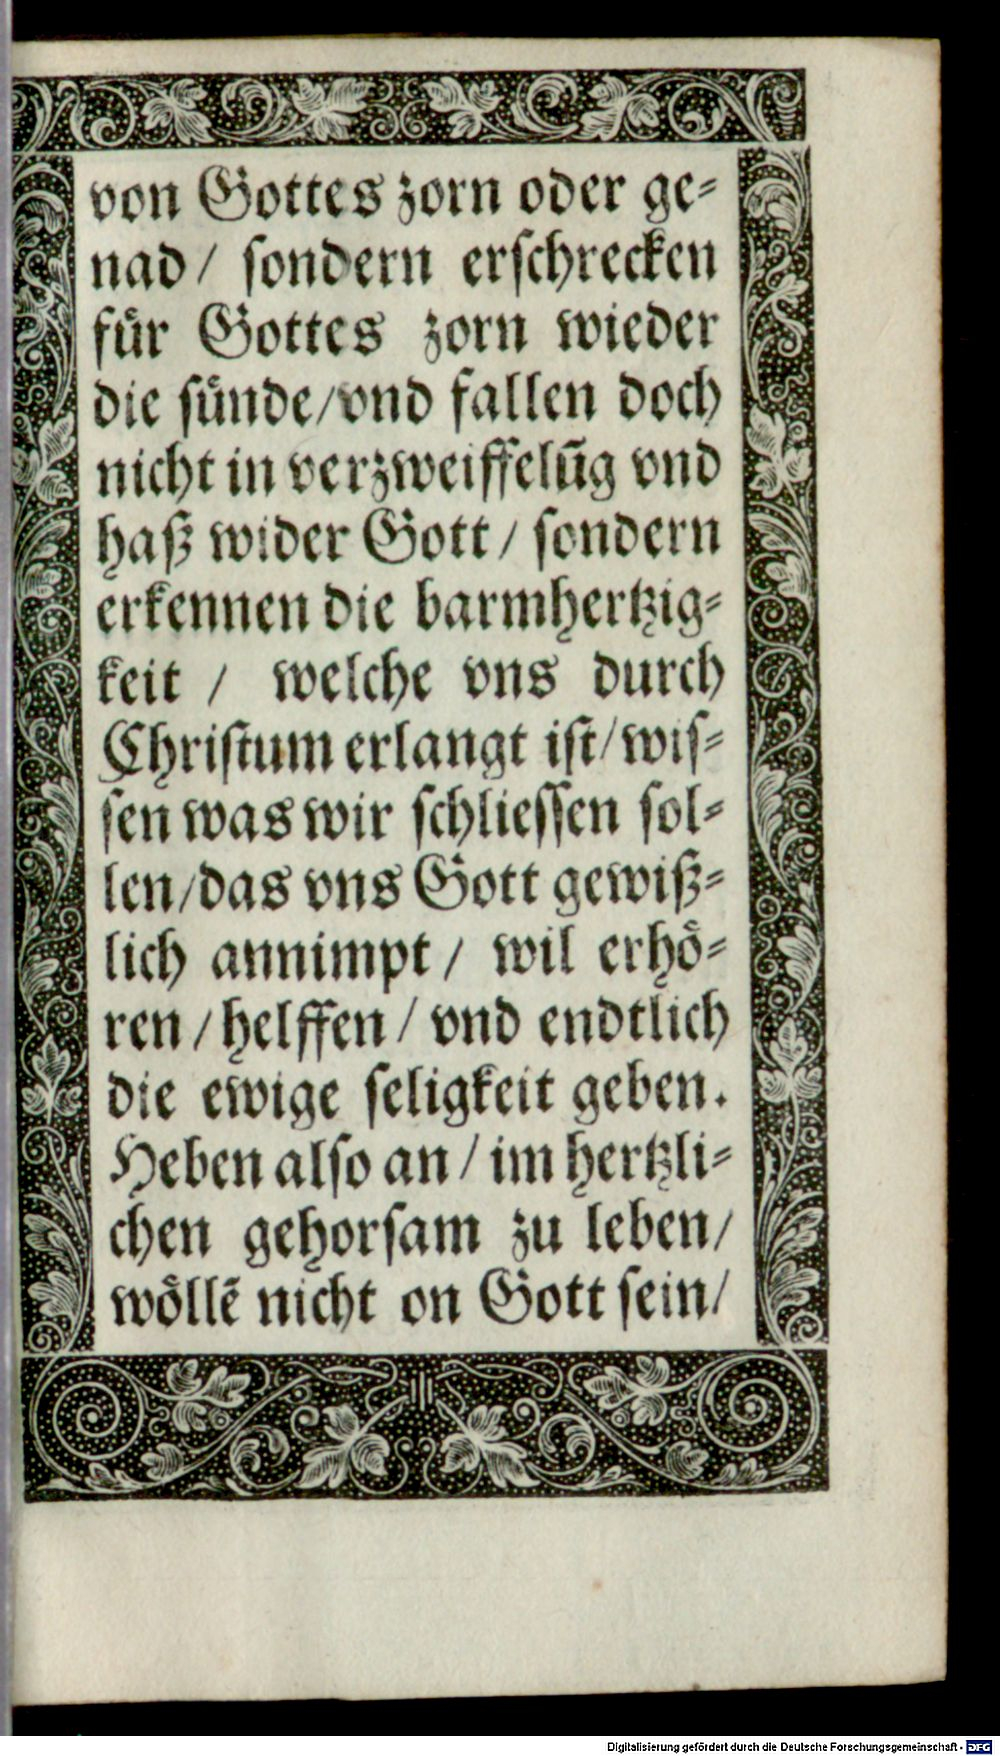 von Gottes zorn oder ge⸗
nad / sondern erschrecken
fuͤr Gottes zorn wieder
die suͤnde/vnd fallen doch
nicht in verzweiffelūg vnd
haß wider Gott / sondern
erkennen die barmhertzig⸗
keit / welche vns durch
Christum erlangt ist/wis⸗
sen was wir schliessen sol⸗
len/das vns Gott gewiß⸗
lich annimpt / wil erhoͤ⸗
ren / helffen / vnd endtlich
die ewige seligkeit geben.
Heben also an / im hertzli⸗
chen gehorsam zu leben/
woͤllē nicht on Gott sein/
Digitalisierung gefördert durch die Deutsche Forschungsgemeinschaft - DFG